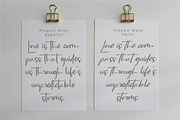 Fragull Hug
Regular
Love is the com-
pass that guides
us through life's
unpredictable
storms.
Love is the com-
pass that guides
us through life's
unpredictable
storms.